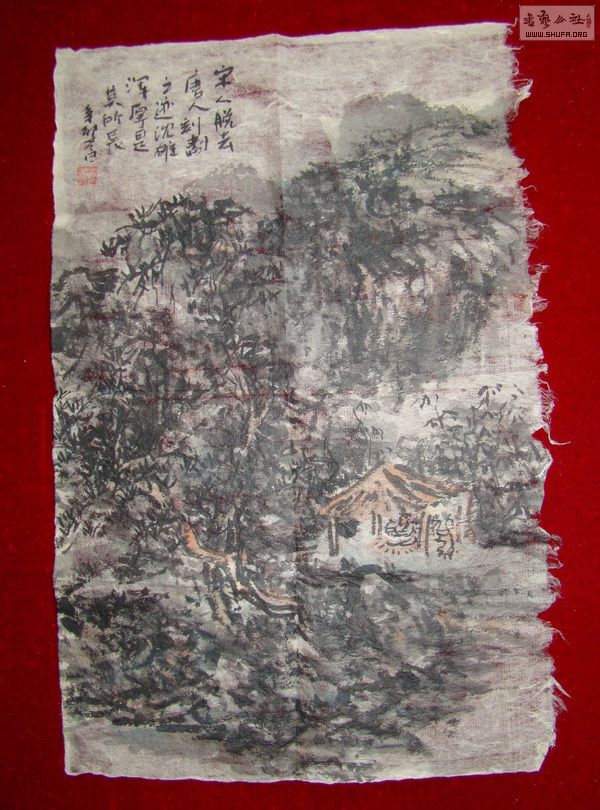 書藝公社
WWW.SHUFA.ORG
宋人脱去
唐人刻劃
之迹沈雄
渾厚是
其所長